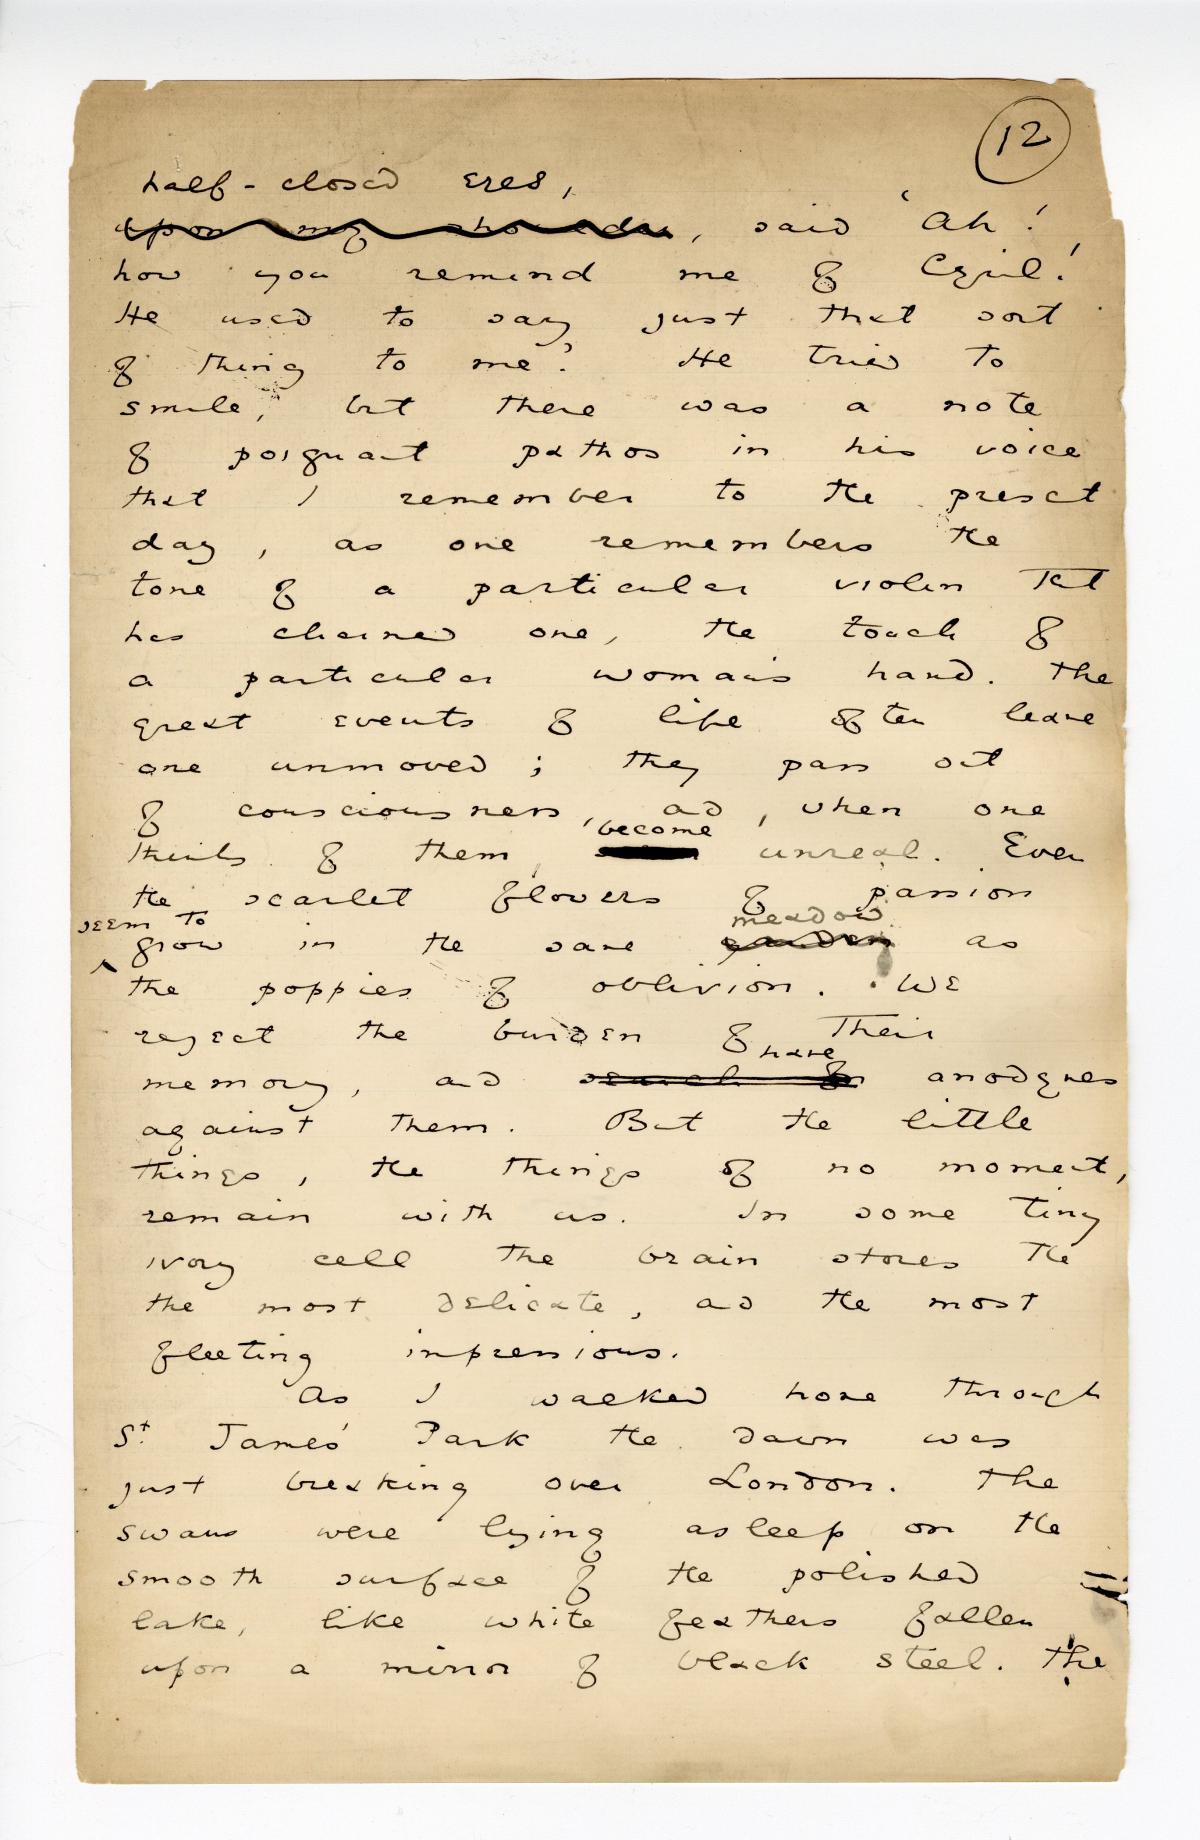 12
half-closed eyes,
upon my shoulder, said 'Ah!
how you remind me of Cyril!
He used to say just that sort
of thing to me'. He tried to
smile, but there was a note
of poignant pathos in his voice
that I remember to the present
day, as one remembers the
tone of a particular violin that
has charmed one, the touch of
a particular woman's hand. The
great events of life often leave
one unmoved; they pass out
of consciousness, and, when one
become
thinks of them, unreal. Even
the scarlet flowers of passion
seem to meadow
grow in the same garden as
the poppies of oblivion. We
reject the burden of their
have
memory, and search for anodynes
against them. But the little
things, the things of no moment,
remain with us. In some tiny
ivory cell the brain stores the
the most delicate, and the most
fleeting impressions.
As I walked home through
St. James' Park the dawn was
just breaking over London. The
swans were lying asleep on the
smooth surface of the polished
lake, like white feathers fallen
upon a mirror of black steel. The